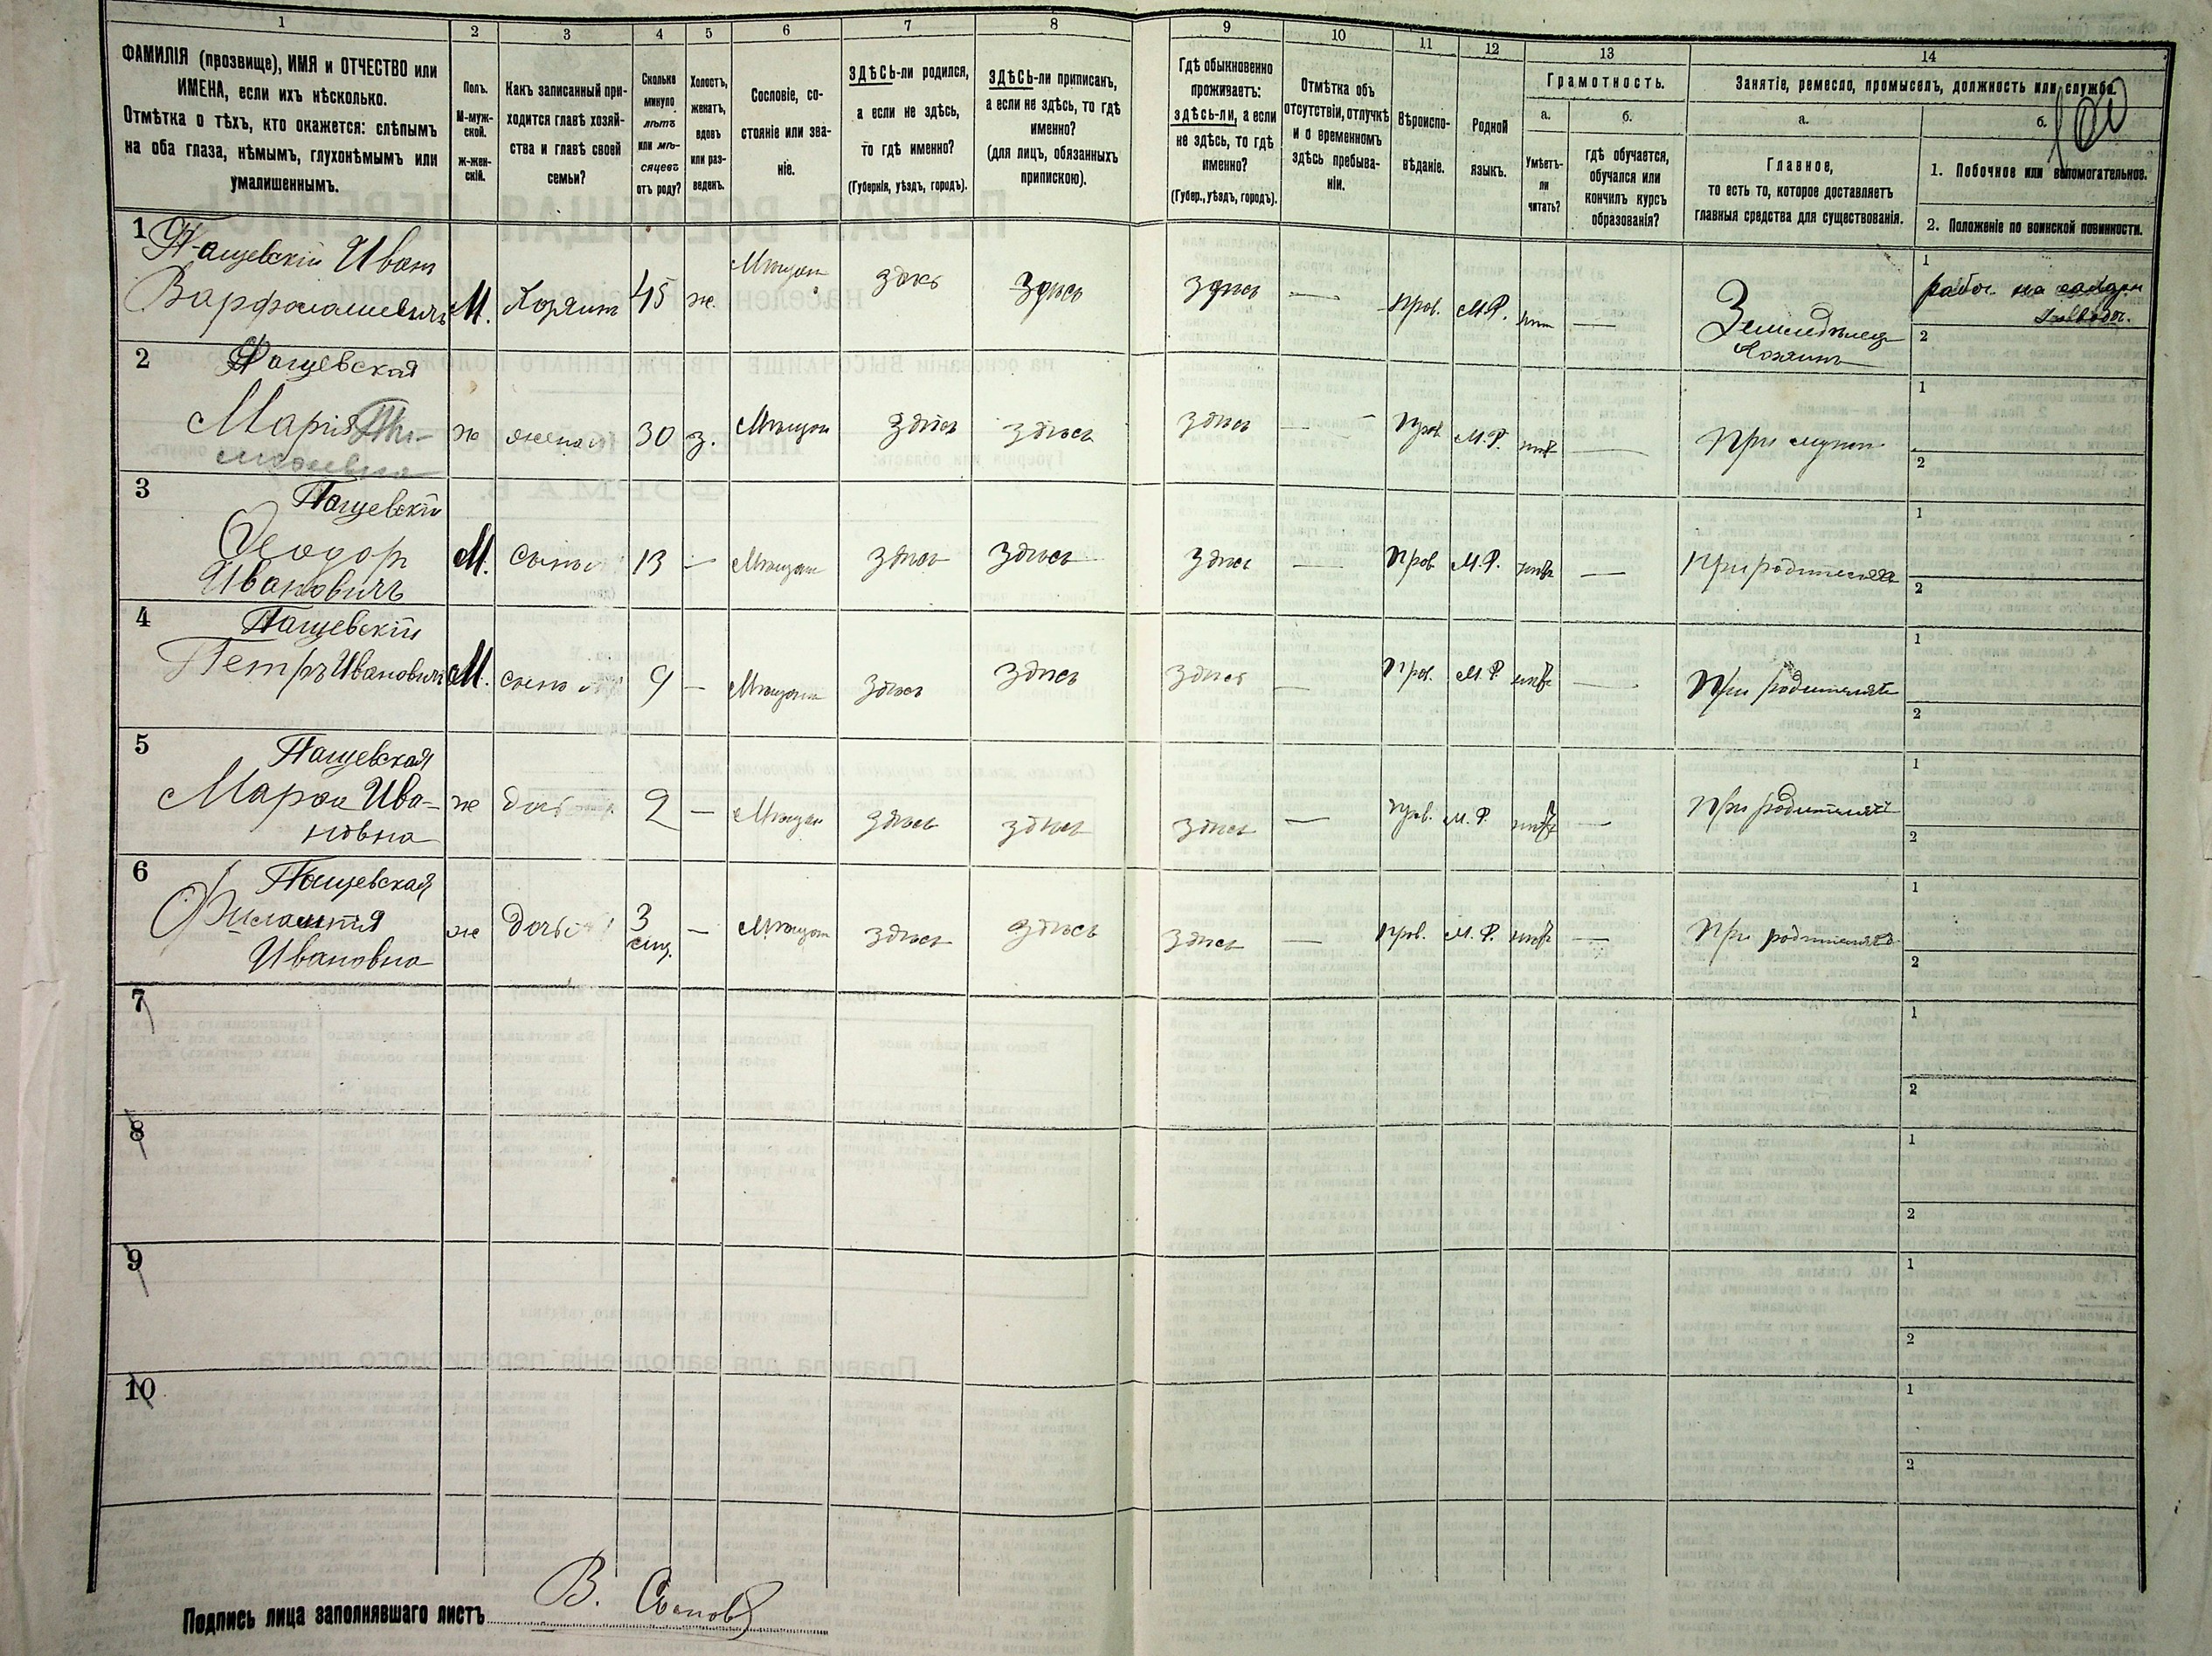 1
2
3
4
5
6
7
8
9
10
11
12
13
14
ФАМИЛІЯ (прозвище), ИМЯ и ОТЧЕСТВО или
ИМЕНА, если ихъ нѣсколько.
Отмѣтка о тѣхъ, кто окажется: слѣпымъ
на оба глаза, нѣмымъ, глухонѣмымъ или
умалишеннымъ.
Полъ.
М-муж-
ской.
ж-жен-
скій.
Какъ записанный при-
ходится главѣ хозяй-
ства и главѣ своей
семьи?
Сколько
минуло
лѣтъ
или мѣ-
сяцевъ
отъ роду?
Холостъ,
женатъ,
вдовъ
или раз-
веденъ.
Сословіе, со-
стояніе или зва-
ніе.
ЗДѢСЬ-ли родился,
а если не здѣсь,
то гдѣ именно?
(Губернія, уѣздъ, городъ).
ЗДѢСЬ-ли приписанъ,
а если не здѣсь, то гдѣ
именно?
(для лицъ, обязанныхъ
припискою).
Гдѣ обыкновенно
проживаетъ:
здѣсь-ли, а если
не здѣсь, то гдѣ
именно?
(Губер., уѣздъ, городъ).
Отмѣтка объ
отсутствіи, отлучкѣ
и о временномъ
здѣсь пребыва-
ніи.
Вѣроиспо-
вѣданіе.
Родной
языкъ.
Грамотность.
а.
Умѣетъ-
ли
читать?
б.
гдѣ обучается,
обучался или
кончилъ курсъ
образованія?
Занятіе, ремесло, промыселъ, должность или служба.
а.
Главное,
то есть то, которое доставляетъ
главныя средства для существованія.
б.
1. Побочное или вспомогательное.
2. Положеніе по воинской повинности.
1
Пащевскій Иванъ
Варфоломеевичъ
М. Хозяинъ 45 ж. Мѣщан здѣсь здѣсь здѣсь — прав. М.Р. нѣт —
Земледѣлец
Хозяинъ
1
работ. на
2
2
Пащевская
Марія
ж жена 30 з. Мѣщан здѣсь здѣсь здѣсь — прав М.Р. нѣт —
При муже
1
2
3
Пащевскій
Ѳеодор
Ивановичъ
М. сынъ 13 — Мѣщан здѣсь здѣсь здѣсь — прав М.Р. нѣт —
При родителях
1
2
4
Пащевскій
Петръ Ивановичъ
М. сынъ 9 — Мѣщан здѣсь здѣсь здѣсь — прав. М.Р. нѣт —
При родителях
1
2
5
Пащевская
Марфа Ива-
новна
ж дочь 2 — Мѣщан здѣсь здѣсь здѣсь — прав. М.Р. нѣт —
При родителях
1
2
6
Пащевская
Ивановна
ж дочь 3 — Мѣщан здѣсь здѣсь здѣсь — прав. М.Р. нѣт —
При родителях
1
2
7
1
2
8
1
2
9
1
2
10
1
2
Подпись лица заполнявшаго листъ В.